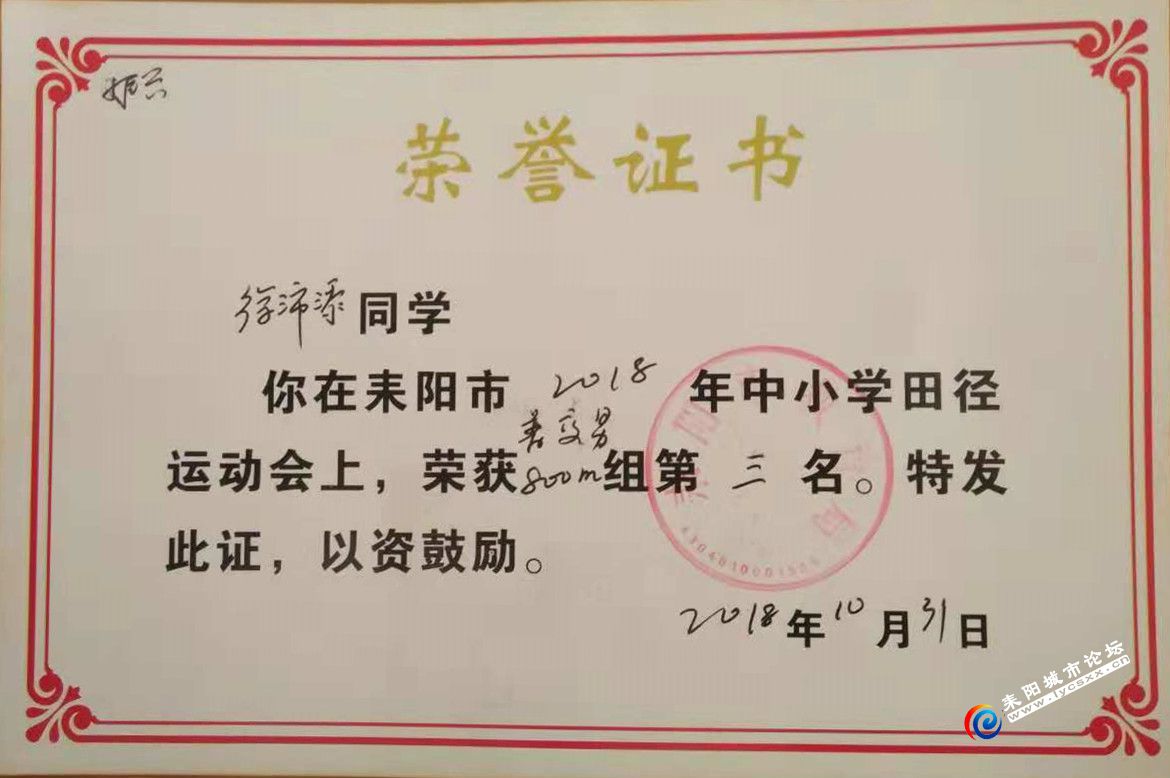 荣誉证书
徐沛添同学
你在耒阳市 2018 年中小学田径
普高男
运动会上，荣获800m组第 三 名。特发
此证，以资鼓励。
2018年10月31日
耒阳城市论坛
www.lycsxx.cn